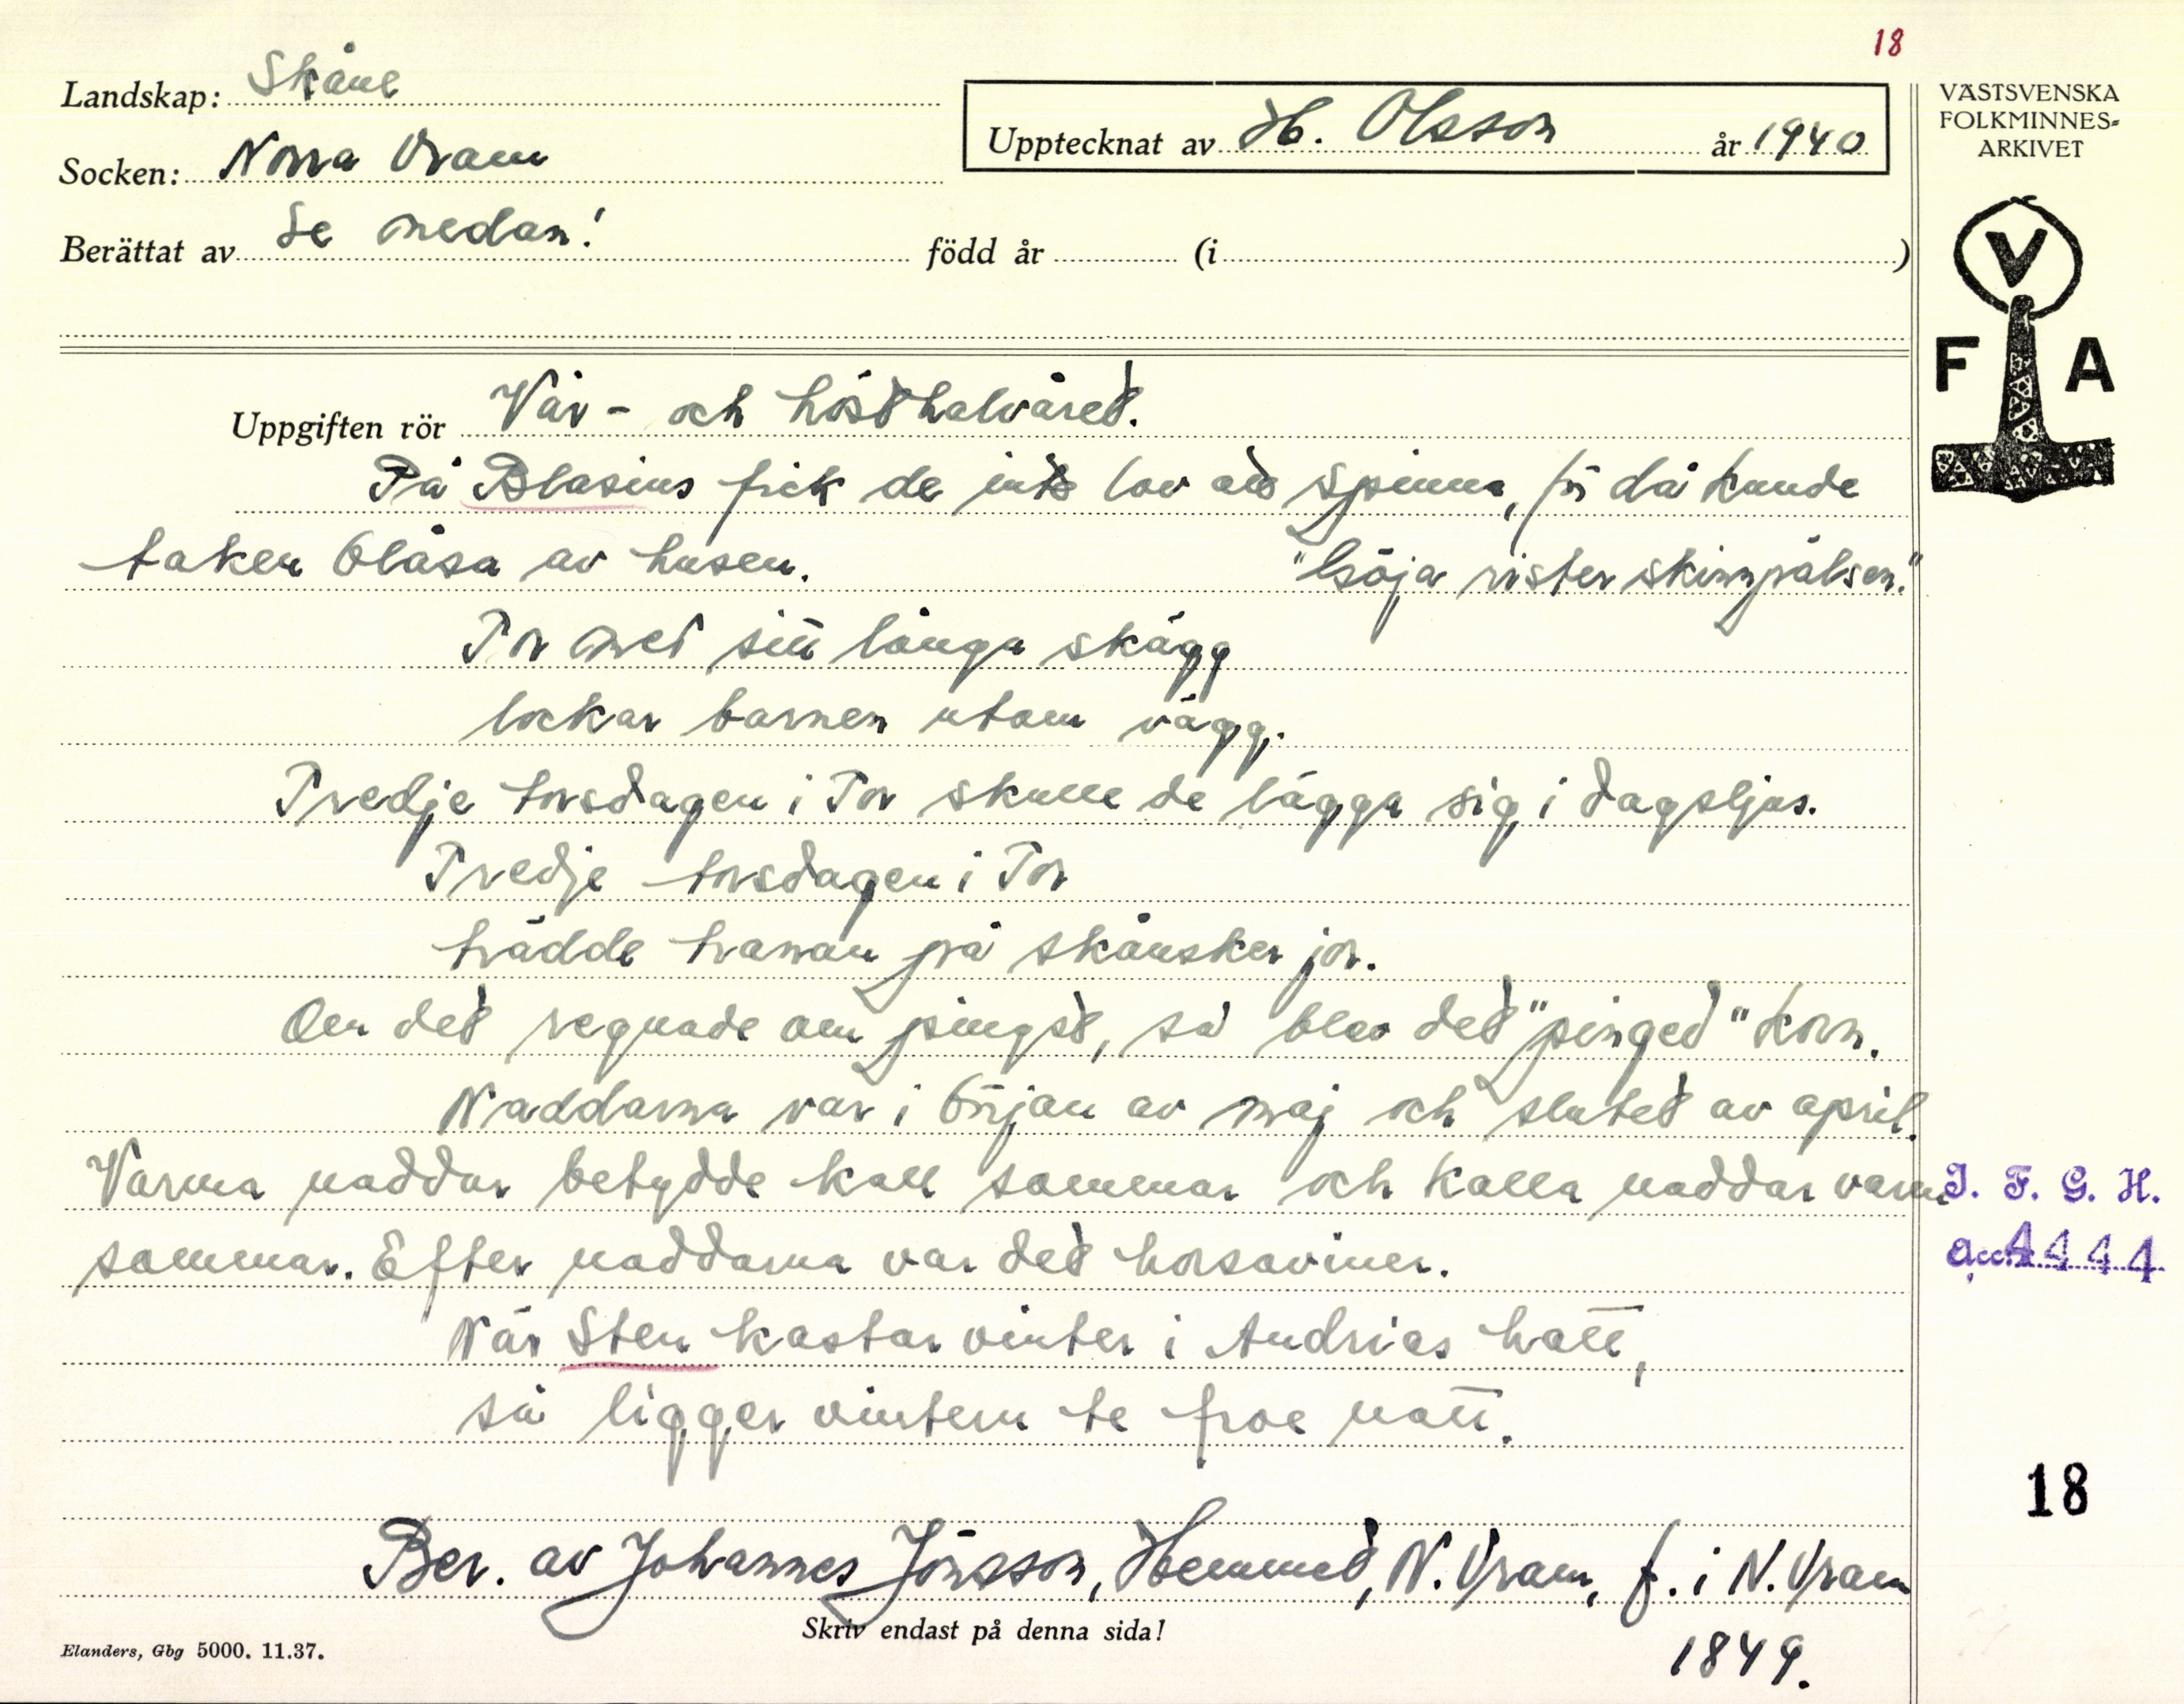 18
Landskap: Skåne
Socken: Norra Vram
Upptecknat av H. Olsson år 1940
Berättat av Se nedan! född år (i )
VÄSTSVENSKA
FOLKMINNES-
ARKIVET
V
F A
Uppgiften rör Vår- och hösthalvåret.
På Blasius fick de inte lov att spinna, för då kunde
taken blåsa av husen. "Göja rister skinnpälsen."
Tor med sitt långa skägg
lockar barnen utom vägg.
Tredje torsdagen i Tor skulle de lägga sig i dagsljus.
Tredje torsdagen i Tor
trädde tranan på skånsker jor.
Om det regnade om pingst, så blev det "pinged" korn.
Naddarna var i början av maj och slutet av april.
Varma naddar betydde kall sommar och kalla naddar varm
sommar. Efter naddarna var det horsaviner.
När Sten kastar vinter i Andrias hatt,
så ligger vintern te froe natt.
J. F. G. H.
Acc. 4444
18
Ber. av Johannes Jönsson, Hemmed, N. Vram, f. i N. Vram
1849.
Skriv endast på denna sida!
Elanders, Gbg 5000. 11.37.